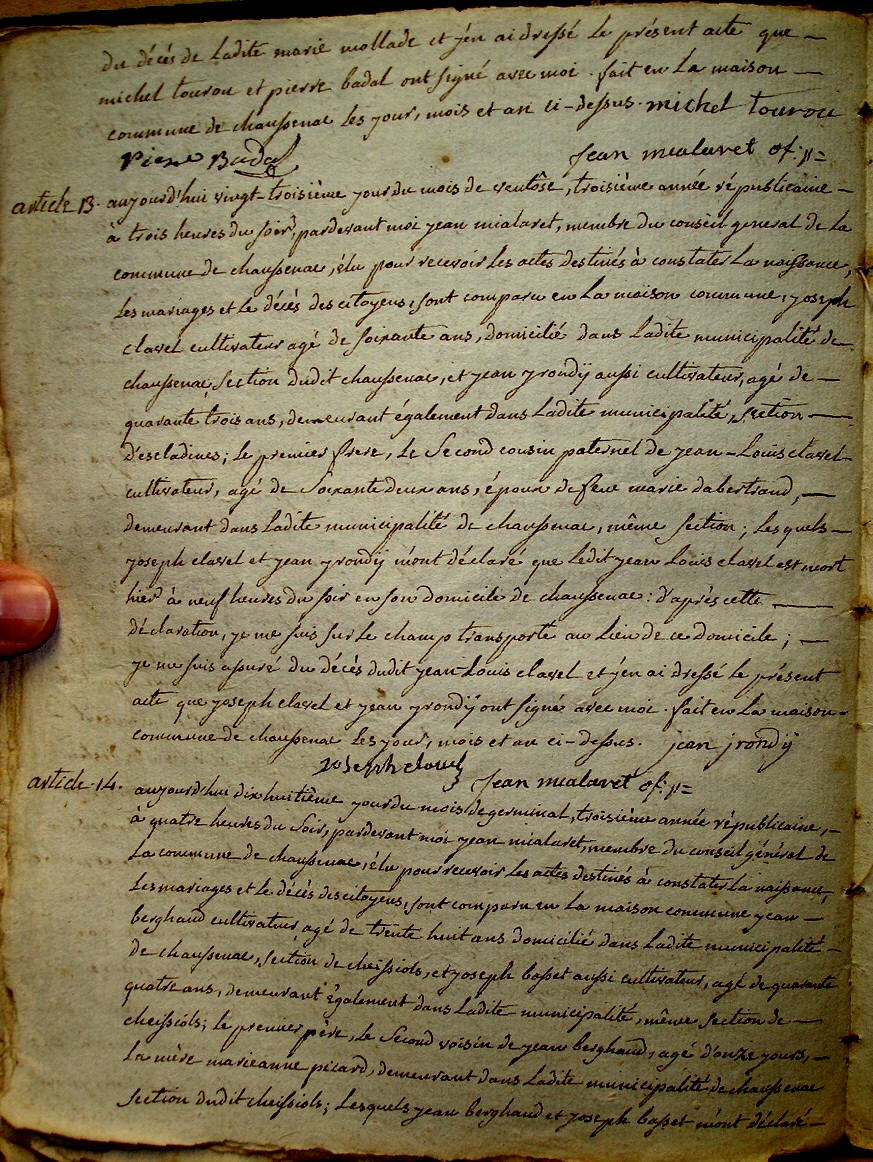 du décés de Ladite marie mollade et j'en ai dressé Le présent acte que —
michel tourou et pierre badal ont signé avec moi. fait en La maison —
commune de chaussenac Les jour, mois et an ci-dessus. michel tourou
Pierre Badal jean mialaret of: p=
article 13. aujourd'hui vingt-troisième jour du mois de ventôse, troisième année républicaine —
à trois heures du soir, pardevant moi jean mialaret, membre du conseil general de La
commune de chaussenac, élu pour recevoir Les actes destinés à constater La naissance,
Les mariages et Le décés des citoyens, sont comparu en La maison commune, joseph
clavel cultivateur agé de soixante ans, domicilié dans Ladite municipalité de —
chaussenac, section dudit chaussenac, et jean jrondÿ aussi cultivateur, agé de —
quarante trois ans, demeurant également dans Ladite municipalité, section —
d'escladines; Le premier frere, Le Second cousin paternel de jean-Louis clavel
cultivateur, agé de Soixante deux ans, époux de feue marie dabertrand, —
demeurant dans Ladite municipalité de chaussenac, même section; Lesquels —
joseph clavel et jean jrondÿ m'ont déclaré que Ledit jean Louis clavel est mort
hier à neuf heures du soir en son domicile de chaussenac: d'après cette —
déclaration, je me suis sur Le champ transporté au Lieu de ce domicile; —
je me suis assuré du décés dudit jean-Louis clavel et j'en ai dressé Le présent
acte que joseph clavel et jean jrondÿ ont signé avec moi. fait en La maison —
commune de chaussenac Les jour, mois et an ci-dessus. jean jrondÿ
joseph clavel jean mialaret of: p=
article 14. aujourd'hui dix huitième jour du mois de germinal, troisième année républicaine, —
à quatre heures du Soir, pardevant moi jean mialaret, membre du conseil général de
La commune de chaussenac, élu pour recevoir Les actes destinés à constater La naissance,
Les mariages et Le décés des citoyens, sont comparu en La maison commune jean —
berghaud cultivateur, agé de trente huit ans domicilié dans Ladite municipalité —
de chaussenac, séction de cheissiols, et joseph basset aussi cultivateur, agé de quarante
quatre ans, demeurant également dans Ladite municipalité, même section de —
cheissiols; Le premier père, Le Second voisin de jean berghaud, agé d'onze jours, —
La mère marieanne picard, demeurant dans Ladite municipalité de chaussenac
section dudit cheissiols; Lesquels jean berghaud et joseph basset m'ont déclaré —